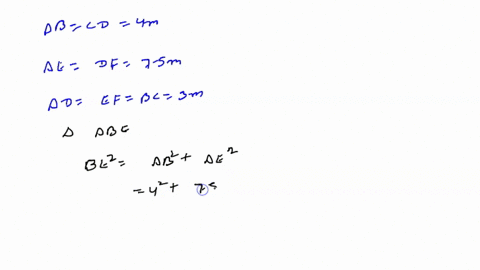 AB = CD = 4m
AE = DF = 7.5m
AD = EF = BC = 3m
Δ ABE
BE² = AB² + AE²
= 4² + 7.5